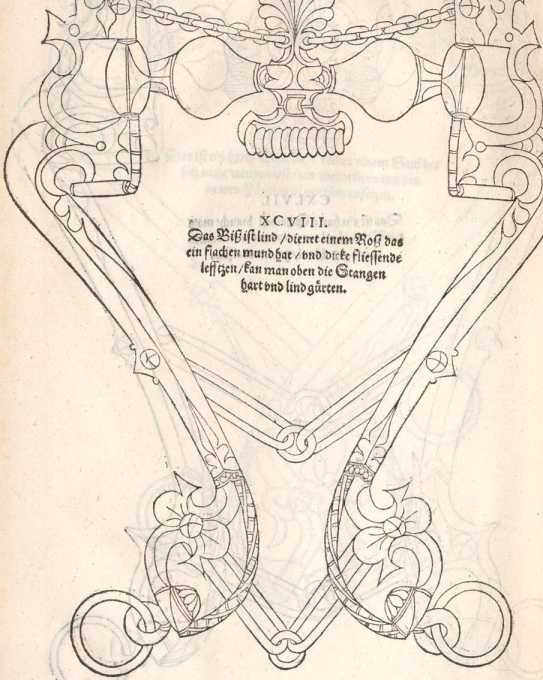 XCVIII.
Das Biß ist lind / dienet einem Roß das
ein flachen mund hat / vnd dicke fliessende
lefftzen / kan man oben die Stangen
hart vnd lind gürten.